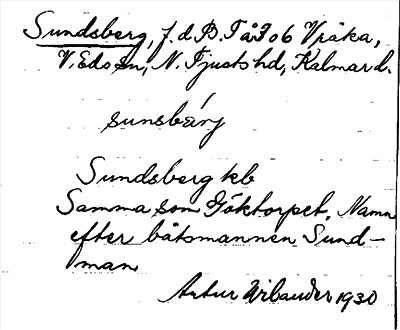 Sundsberg, f. d. B. T å F ob Vråka,
V. Eds sn, N. Tjusts hd, Kalmar l.
sunsbärj
Sundsberg kb
Samma som Göktorpet. Namn
efter båtsmannen Sund-
man
Artur Wilander 1930